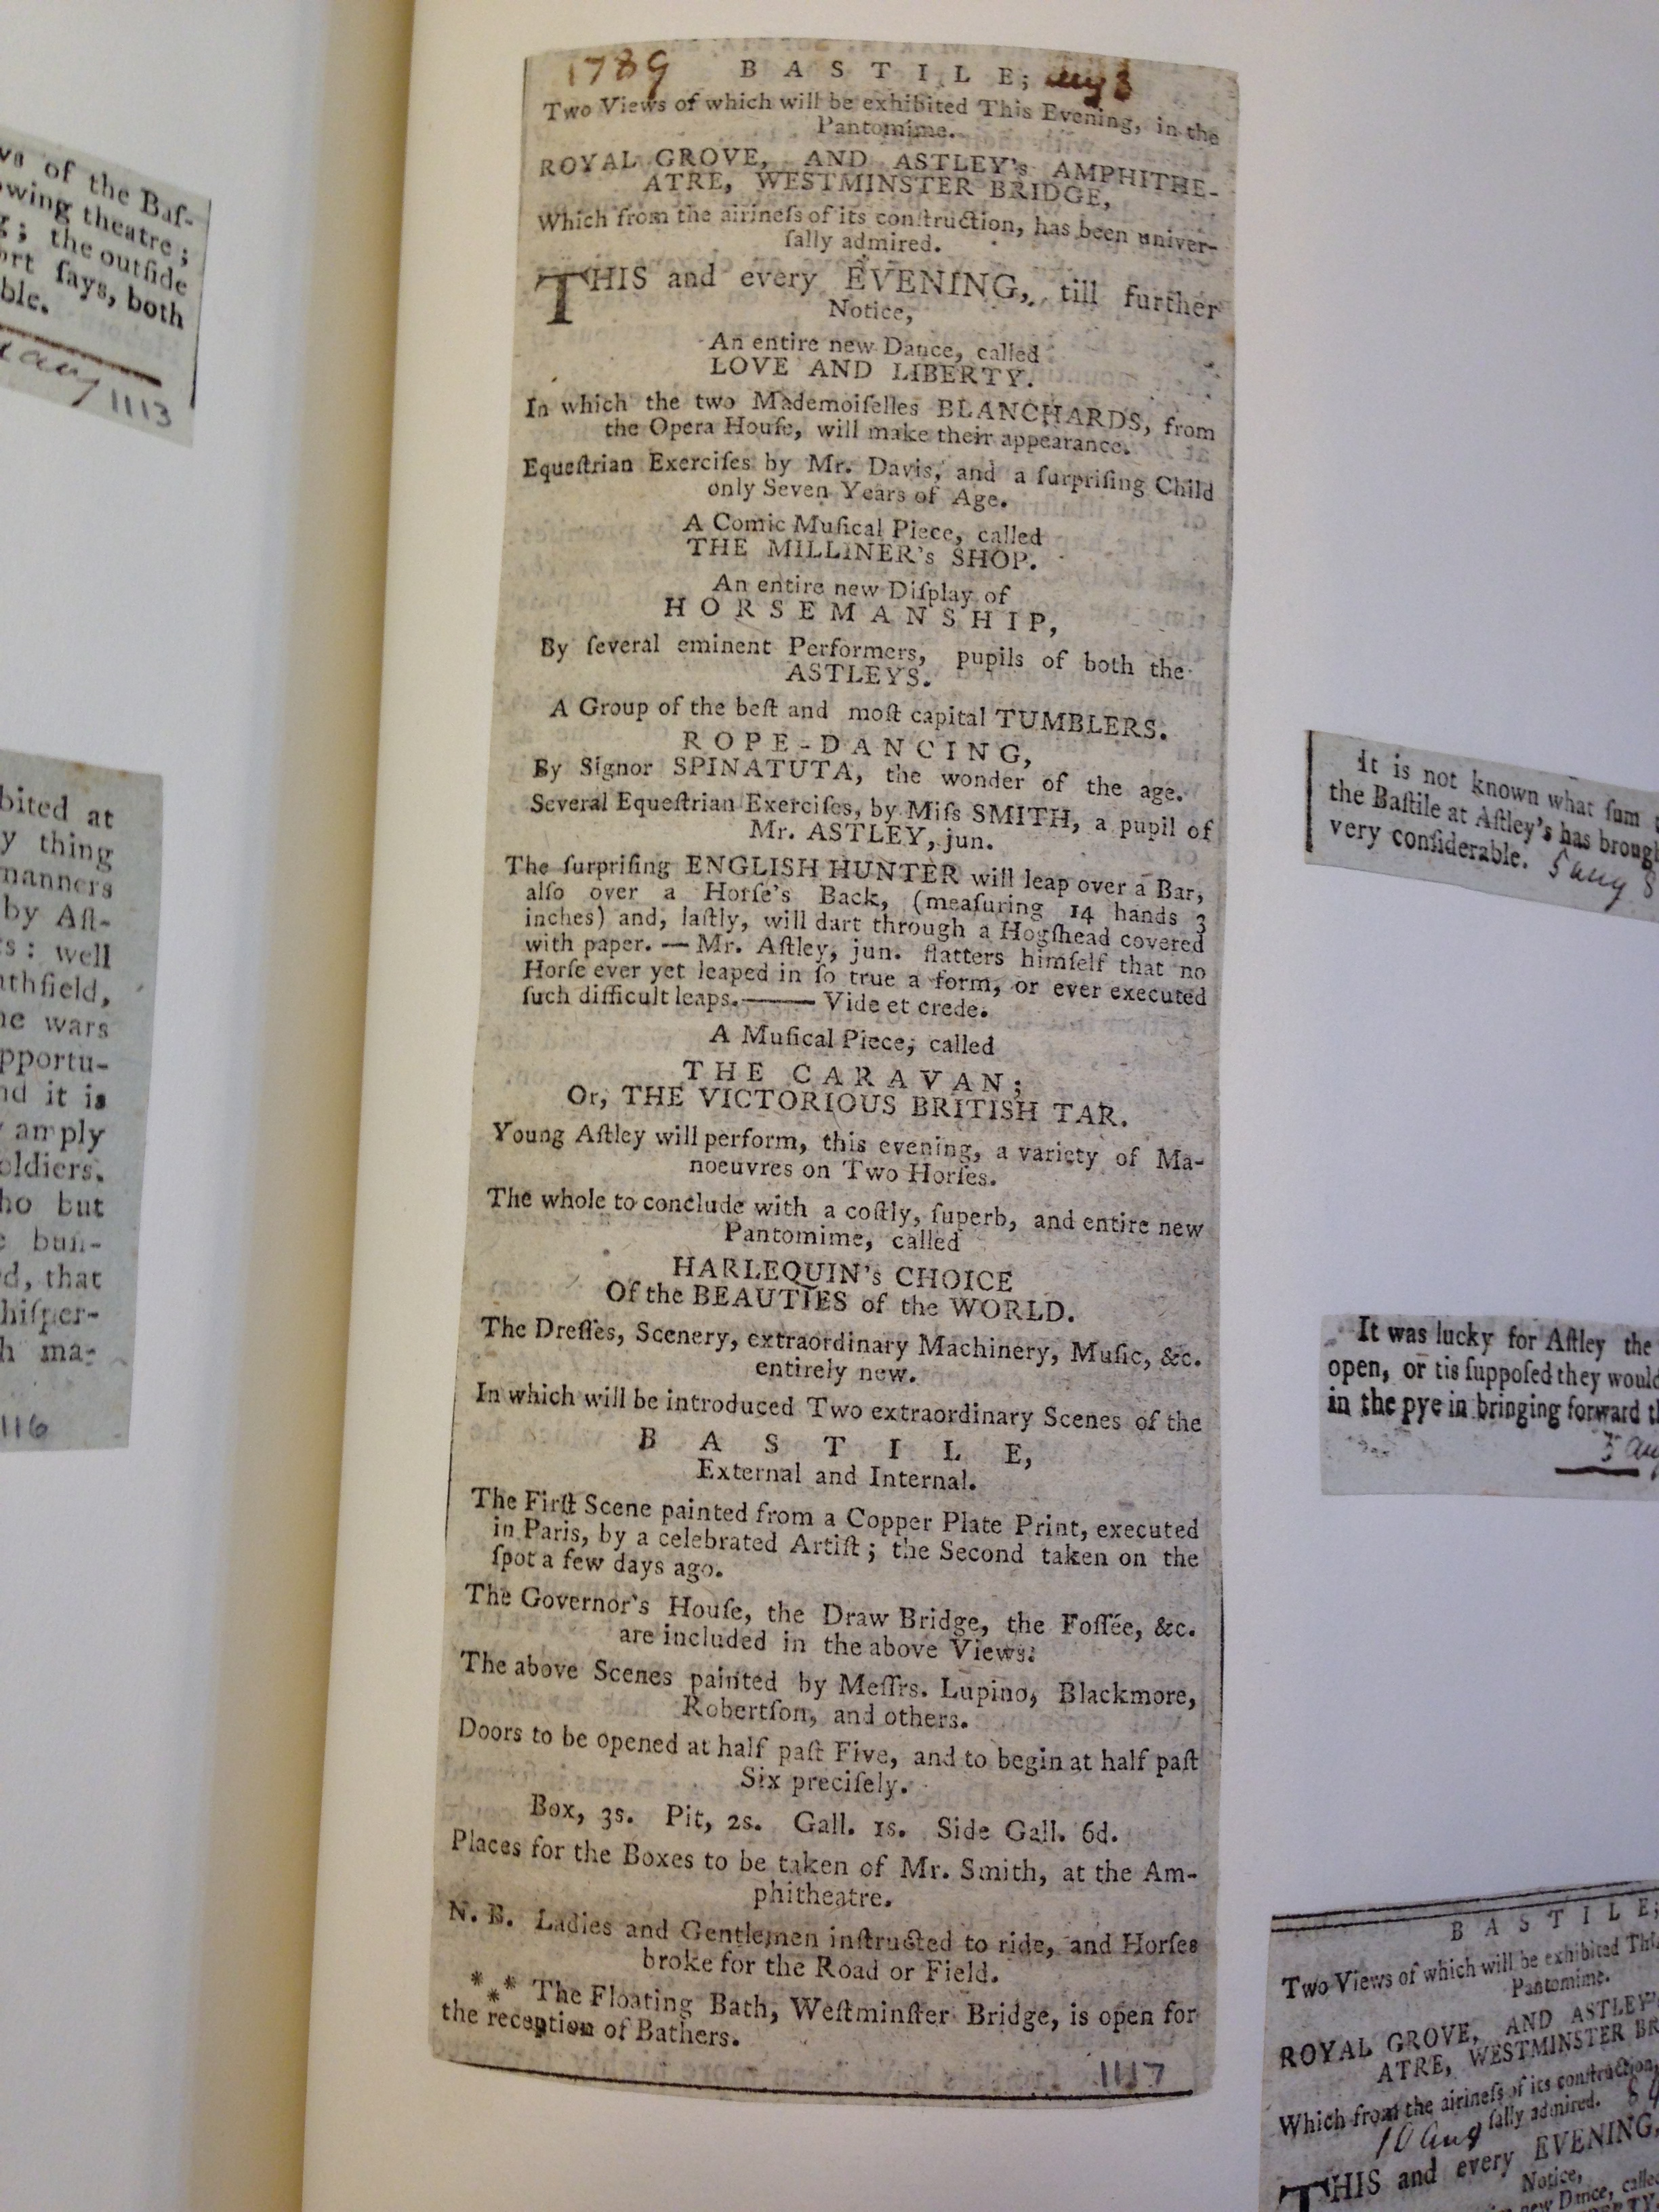 ws of the Baſ-
owing theatre;
g; the outſide
ort ſays, both
ble.
aug 1113
bited at
y thing
manners
by Aſt-
rs: well
athfield,
he wars
pportu-
nd it is
amply
oldiers.
ho but
e bun-
d, that
hiſper-
h ma-
116
1789 BASTILE; aug 3
Two Views of which will be exhibited This Evening, in the
Pantomime.
ROYAL GROVE, AND ASTLEY's AMPHITHE-
ATRE, WESTMINSTER BRIDGE,
Which from the airineſs of its conſtruction, has been univer-
ſally admired.
THIS and every EVENING, till further
Notice,
An entire new Dance, called
LOVE AND LIBERTY.
In which the two Mademoiſelles BLANCHARDS, from
the Opera Houſe, will make their appearance.
Equeſtrian Exerciſes by Mr. Davis, and a ſurpriſing Child
only Seven Years of Age.
A Comic Muſical Piece, called
THE MILLINER's SHOP.
An entire new Diſplay of
HORSEMANSHIP,
By ſeveral eminent Performers, pupils of both the
ASTLEYS.
A Group of the beſt and moſt capital TUMBLERS.
ROPE-DANCING,
By Signor SPINATUTA, the wonder of the age.
Several Equeſtrian Exerciſes, by Miſs SMITH, a pupil of
Mr. ASTLEY, jun.
The ſurpriſing ENGLISH HUNTER will leap over a Bar,
alſo over a Horſe's Back, (meaſuring 14 hands 3
inches) and, laſtly, will dart through a Hogſhead covered
with paper. — Mr. Aſtley, jun. flatters himſelf that no
Horſe ever yet leaped in ſo true a form, or ever executed
ſuch difficult leaps.—— Vide et crede.
A Muſical Piece, called
THE CARAVAN;
Or, THE VICTORIOUS BRITISH TAR.
Young Aſtley will perform, this evening, a variety of Ma-
noeuvres on Two Horſes.
The whole to conclude with a coſtly, ſuperb, and entire new
Pantomime, called
HARLEQUIN's CHOICE
Of the BEAUTIES of the WORLD.
The Dreſſes, Scenery, extraordinary Machinery, Muſic, &c.
entirely new.
In which will be introduced Two extraordinary Scenes of the
BASTILE,
External and Internal.
The Firſt Scene painted from a Copper Plate Print, executed
in Paris, by a celebrated Artiſt; the Second taken on the
ſpot a few days ago.
The Governor's Houſe, the Draw Bridge, the Foſſée, &c.
are included in the above Views.
The above Scenes painted by Meſſrs. Lupino, Blackmore,
Robertſon, and others.
Doors to be opened at half paſt Five, and to begin at half paſt
Six preciſely.
Box, 3s. Pit, 2s. Gall. 1s. Side Gall. 6d.
Places for the Boxes to be taken of Mr. Smith, at the Am-
phitheatre.
N. B. Ladies and Gentlemen inſtructed to ride, and Horſes
broke for the Road or Field.
*** The Floating Bath, Weſtminſter Bridge, is open for
the reception of Bathers.
1117
It is not known what ſum
the Baſtile at Aſtley's has brough
very conſiderable. 5 aug 8
It was lucky for Aſtley the
open, or tis ſuppoſed they would
in the pye in bringing forward t
5 au
BASTILE;
Two Views of which will be exhibited Thi
Pantomime.
ROYAL GROVE, AND ASTLEY'
ATRE, WESTMINSTER BR
Which from the airineſs of its conſtruction,
ſally admired.
10 aug
THIS and every EVENING,
Notice,
new Dance, calle